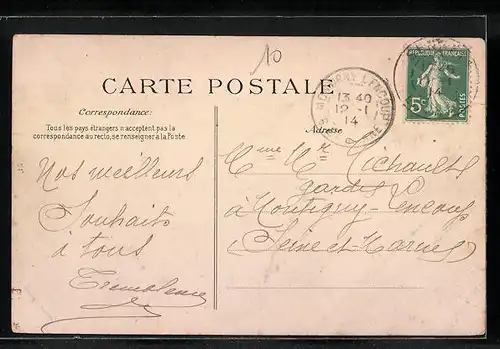 10
CARTE POSTALE
Correspondance:
Tous les pays étrangers n'acceptent pas la
correspondance au recto, se renseigner à la Poste
Adresse
RÉPUBLIQUE FRANÇAISE
5c
POSTES
13 40
12 - 1
14
Nos meilleurs
Souhaits
à tous
Mme Mr Michault
garde
à Montigny-Lencoup
(Seine-et-Marne)